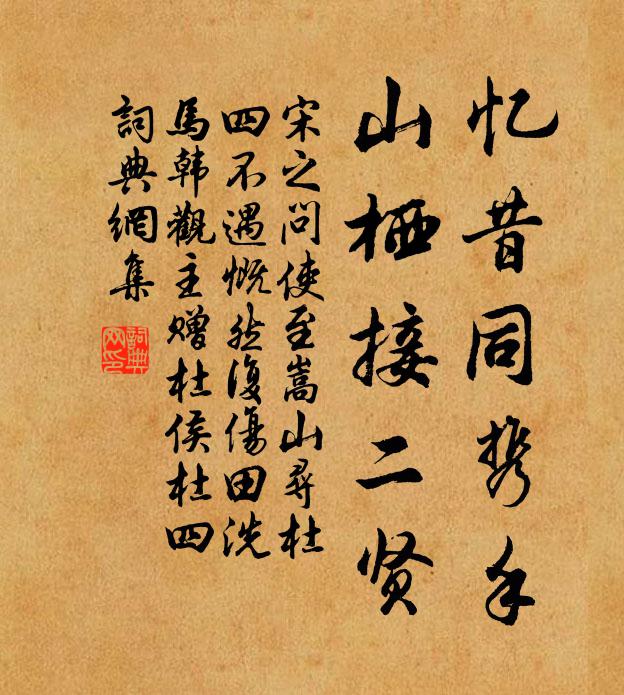 忆昔同携手
山栖接二贤
宋之问使至嵩山寻杜
四不遇慨然复伤田洗
马韩觀主赠杜侯杜四
詞典網集
詞典网印